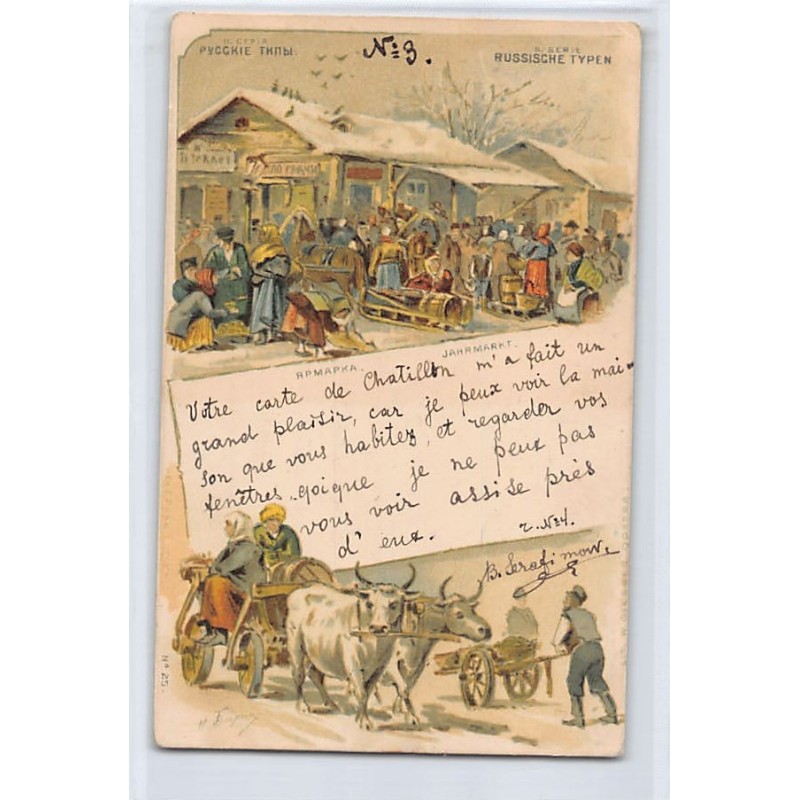 II. СЕРІЯ
РУССКІЕ ТИПЫ.
№ 3.
II. SERIE
RUSSISCHE TYPEN
ЯРМАРКА.
JAHRMARKT.
Votre carte de Chatillon m'a fait un
grand plaisir, car je peux voir la mai-
son que vous habitez, et regarder vos
fenêtres, qoique je ne peux pas
vous voir assise près
d'eux.
r. №4.
B. Serafimow.
№ 25.